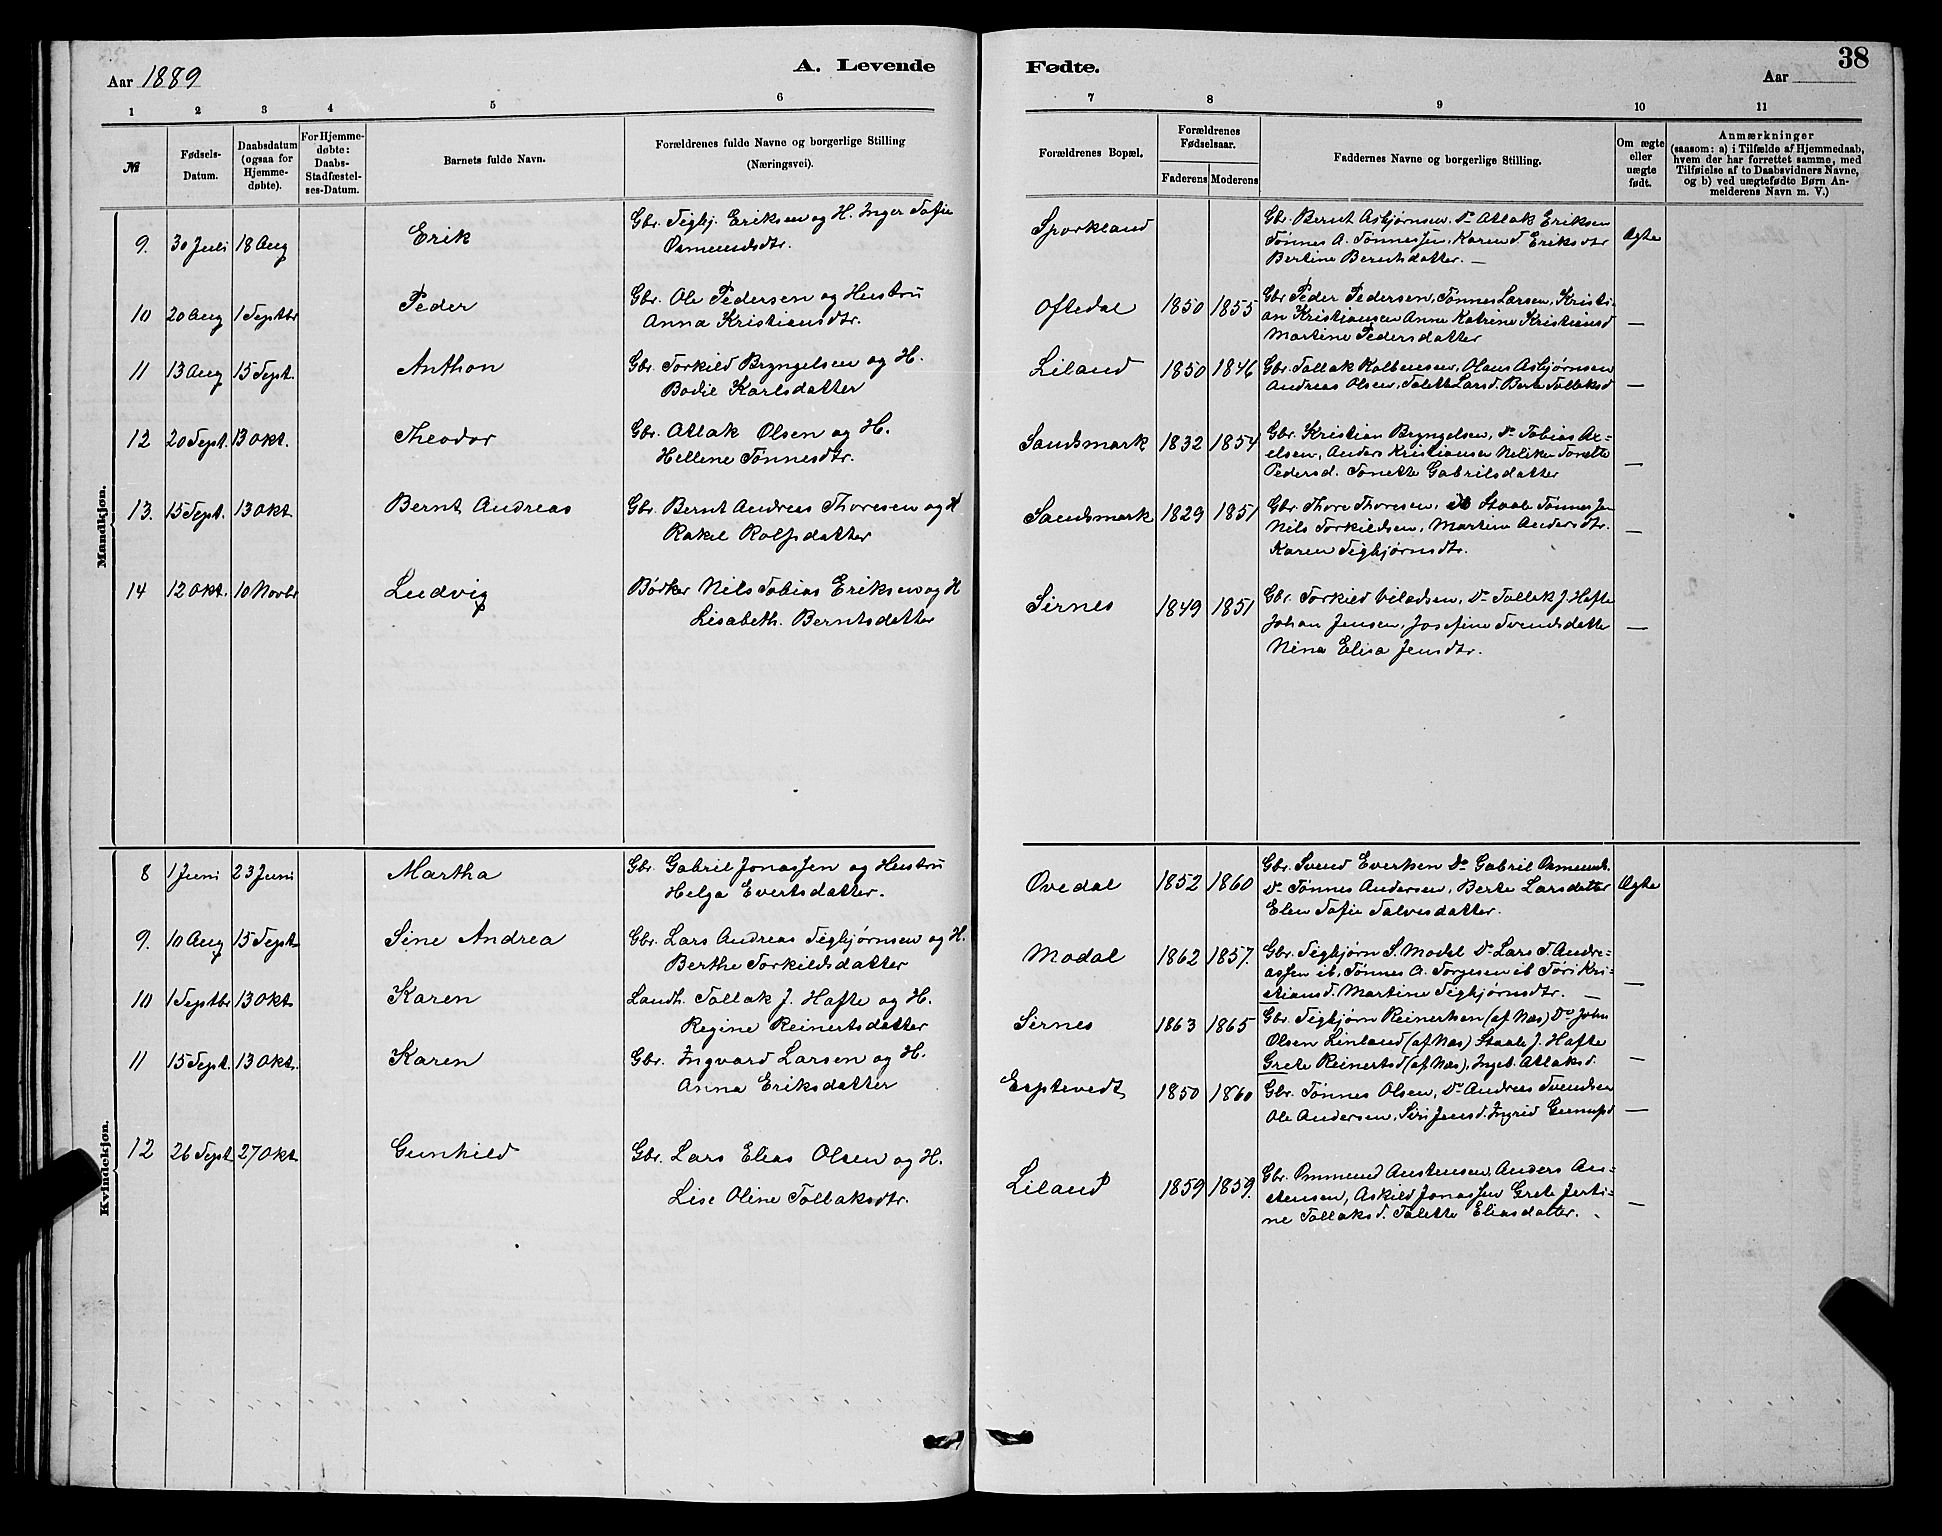 Aar 1889
A. Levende
Fødte.
38
Aar
1 2 3 4 5 6
7 8 9 10 11
№
Fødsels-
Datum.
Daabsdatum
(ogsaa for
Hjemme-
døbte).
For Hjemme-
døbte:
Daabs-
Stadfæstel-
ses-Datum.
Barnets fulde Navn.
Forældrenes fulde Navne og borgerlige Stilling
(Næringsvei).
Forældrenes Bopæl.
Forældrenes
Fødselsaar.
Faderens Moderens
Faddernes Navne og borgerlige Stilling.
Om ægte
eller
uægte
født.
Anmærkninger
(saasom: a) i Tilfælde af Hjemmedaab,
hvem der har forrettet samme, med
Tilføielse af to Daabsvidners Navne,
og b) ved uægtefødte Børn An-
melderens Navn m. V.)
Mandkjøn.
9. 30 Juli 18 Aug Erik Gbr. Sigbj. Eriksen og H. Inger Sofie
Osmundsdtr.
Sporkland
Gbr. Bernt Asbjørnsen, Do Atlak Eriksen
Tønnes A. Tønnessen, Karen S Eriksdtr
Bertine Berntsdatter. —
Ægte
10 20 Aug 1 Septbr Peder Gbr. Ole Pedersen og Hustru
Anna Kristiansdtr.
Oftedal 1850 1855
Gbr Peder Pedersen, Tønnes Larsen, Kristi-
an Kristiansen Anne Katrine Kristiansd
Martine Pedersdatter
—
11 13 Aug 15 Sept. Anthon Gbr. Torkild Bryngelsen og H.
Bodil Karlsdatter
Liland 1850 1846
Gbr. Tollak Kolbensen, Olaus Asbjørnsen
Andreas Olsen, Talette Larsd. Berte Tollaksd
—
12 20 Sept. 13 Okt. Theodor Gbr. Atlak Olsen og H.
Hellene Tønnesdtr.
Sandsmark 1832 1854
Gbr. Kristian Bryngelsen, Do Tobias Ax-
elsen, Anders Kristiansen Nelike Tonette
Pedersd. Tonette Gabrielsdatter
—
13. 15 Sept. 13 Okt Bernt Andreas Gbr. Bernt Andreas Thoresen og H
Rakel Rolfsdatter
Sandsmark 1829 1851
Gbr. Thore Thoresen, Staale Tønnessen
Nils Torkildsen, Martine Andersdtr.
Karen Sigbjørnsdtr.
—
14 12 Okt. 10 Novbr Ludvig Bødker Nils Tobias Eriksen og H
Lisabeth Berntsdatter
Sirnes 1849 1851
Gbr. Torkild Viladsen, Do Tollak J. Hafte
Johan Jensen, Josefine Svendsdatter
Nina Elisa Jensdtr.
—
Kvindekjøn.
8 1 Juni 23 Juni Martha Gbr. Gabriel Jonassen og Hustru
Helga Evertsdatter.
Ovedal 1852 1860
Gbr. Svend Evertsen Do Gabriel Osmunds.
Do Tønnes Andersen, Berte Larsdatter
Elen Sofie Salvesdatter.
Ægte
9. 10 Aug 15 Sept Sine Andrea Gbr. Lars Andreas Sigbjørnsen og H.
Berthe Torkildsdatter
Modal 1862 1857.
Gbr. Sigbjørn S. Modal Do Lars T. Andre-
assen ib, Tønnes A. Torgesen ib Tøri Kri-
stiansd. Martine Sigbjørnsdtr. —
—
10 1 Septbr 13 Okt Karen Landh. Tollak J. Hafte og H.
Regine Reinertsdatter
Sirnes 1863 1865
Gbr. Sigbjørn Reinertsen (af Næs) Do John
Olsen Linland (af Næs) Staale J. Hafte
Grete Reinertsd (af Næs), Ingeb. Atlaksd.
—
11 15 Sept. 13 Okt. Karen Gbr. Ingvard Larsen og H.
Anna Eriksdatter
Esptevedt 1850 1860
Gbr. Tønnes Olsen, Do Andreas Svendsen
Ole Andersen, Siri Jensd. Ingrid
—
12 26 Sept 27 Okt Gunhild Gbr. Lars Elias Olsen og H.
Lise Oline Tollaksdtr.
Liland 1859 1859.
Gbr. Ommund Austensen, Anders Au-
stensen, Askild Jonassen Grete Jerti-
ne Tollaksd. Talette Eliasdatter.
—